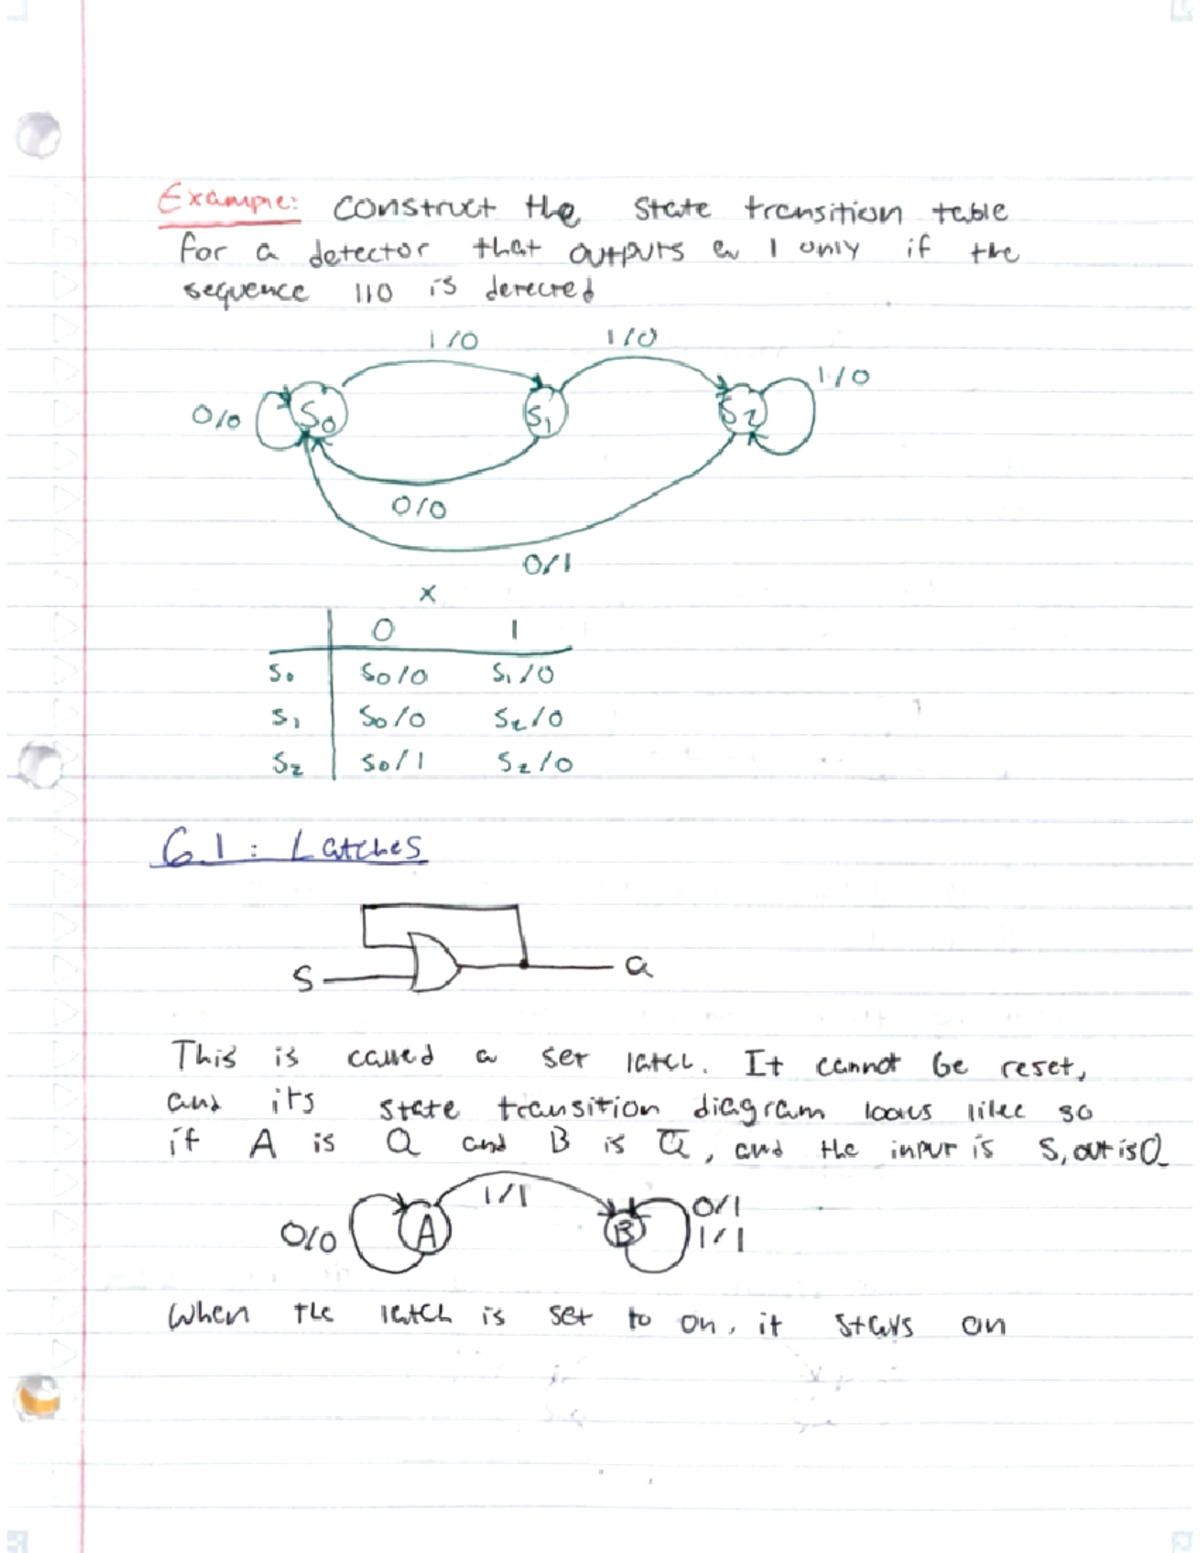 Example: construct the state transition table
for a detector that outputs a 1 only if the
sequence 110 is detected
1/0 1/0
1/0
0/0 S0 S1 S2
0/0
0/1
x
0 1
S0 S0/0 S1/0
S1 S0/0 S2/0
S2 S0/1 S2/0
6.1: Latches
S Q
This is called a set latch. It cannot be reset,
and its state transition diagram looks like so
if A is Q and B is Q̅, and the input is S, out is Q
1/1
0/0 A B 0/1
1/1
When the latch is set to on, it stays on